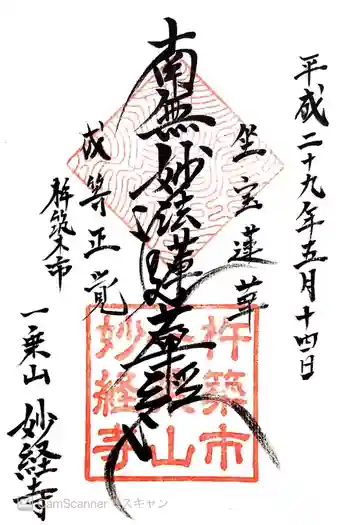 平成二十九年五月十四日
坐宝蓮華
南無妙法蓮華経
成等正覚
杵築市
一乗山 妙経寺
杵築市
一乗山
妙経寺
CamScanner でスキャン